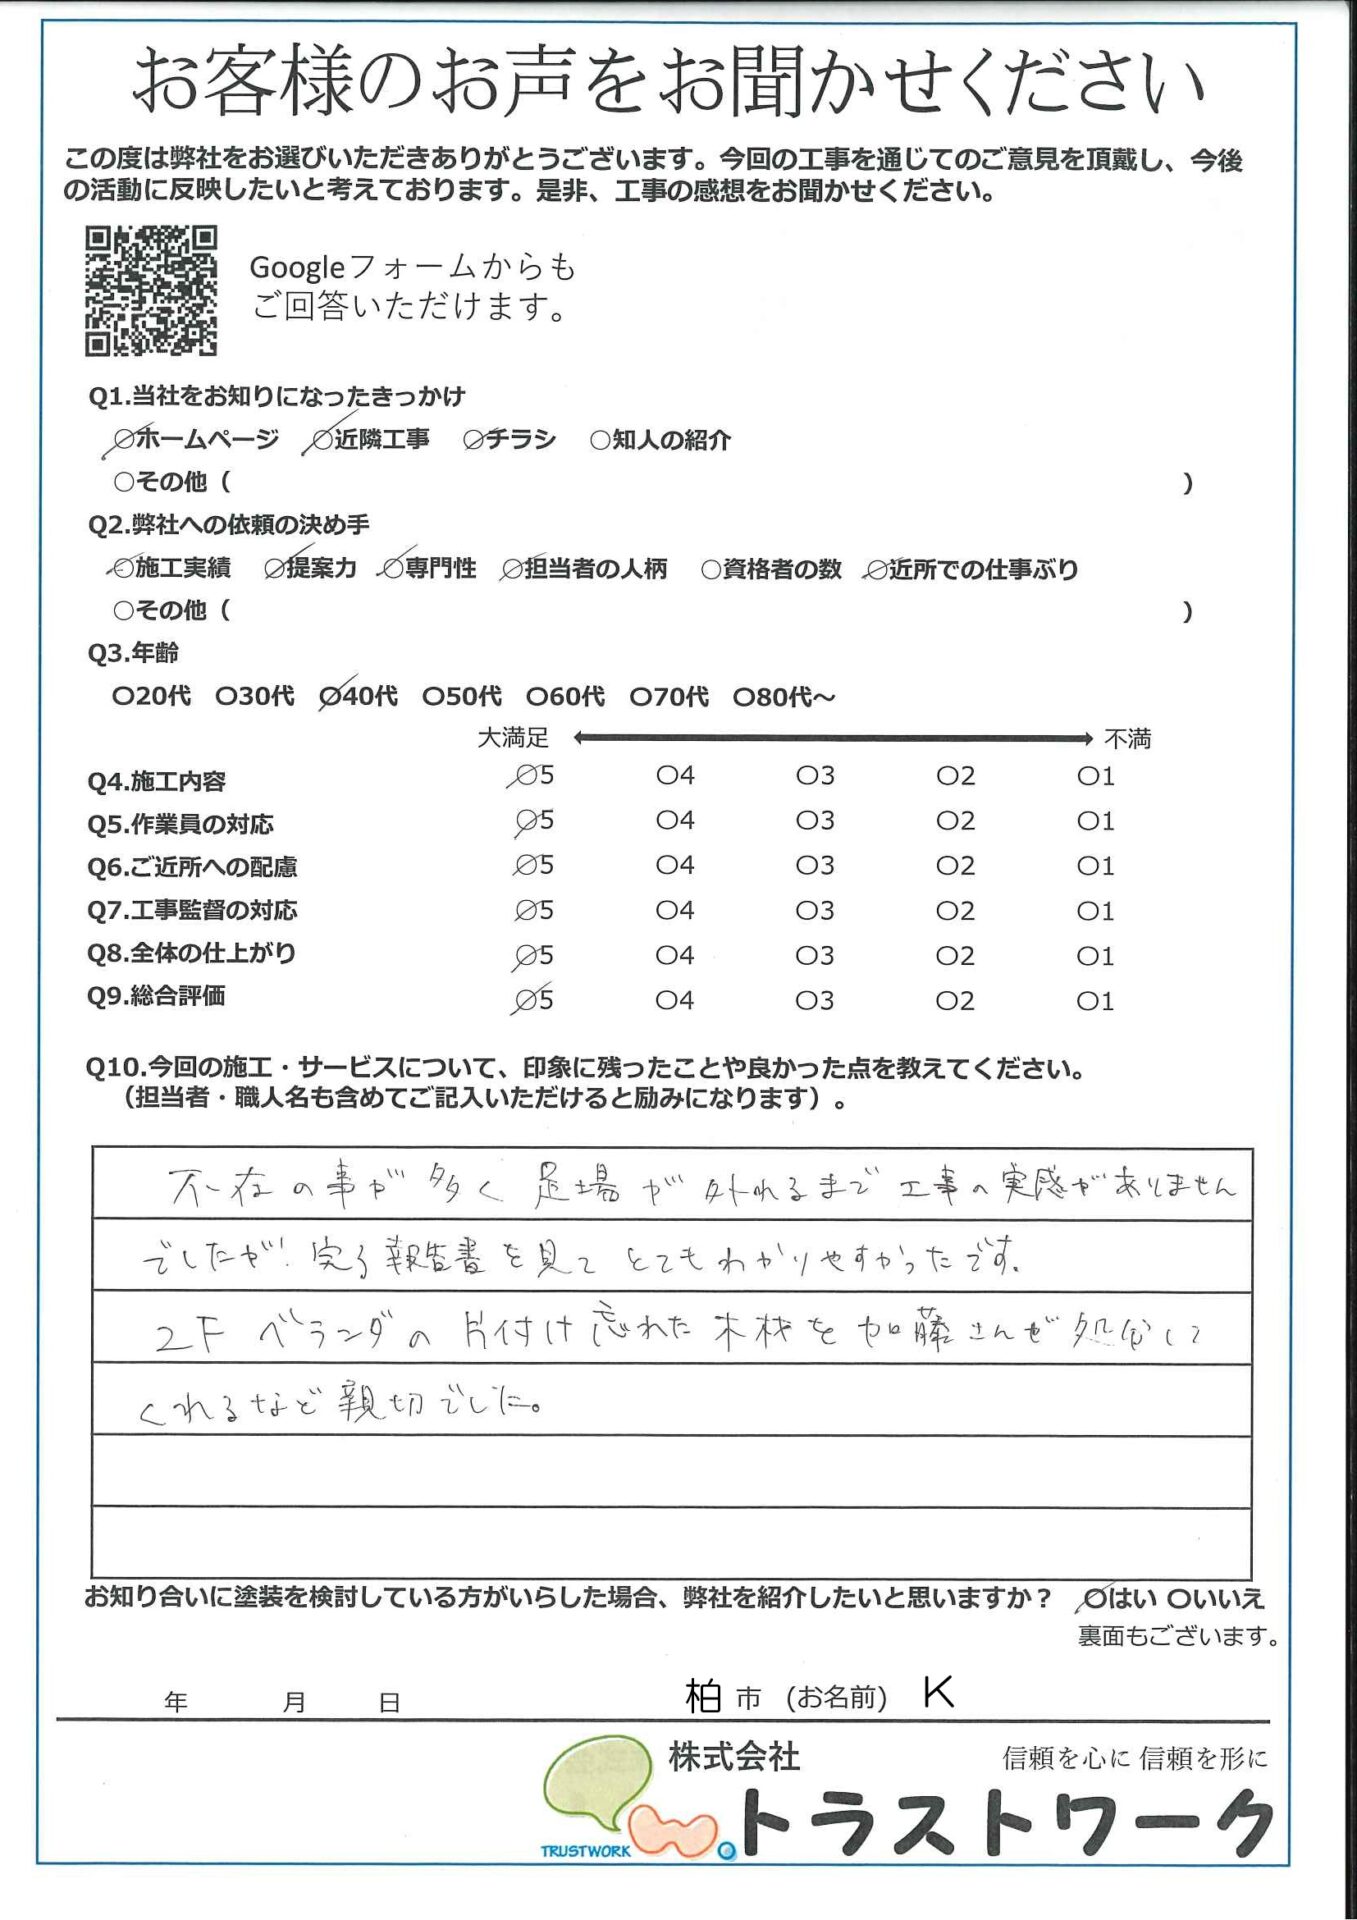 お客様のお声をお聞かせください
この度は弊社をお選びいただきありがとうございます。今回の工事を通じてのご意見を頂戴し、今後
の活動に反映したいと考えております。是非、工事の感想をお聞かせください。
Googleフォームからも
ご回答いただけます。
Q1.当社をお知りになったきっかけ
○ホームページ ○近隣工事 ○チラシ ○知人の紹介
○その他（ ）
Q2.弊社への依頼の決め手
○施工実績 ○提案力 ○専門性 ○担当者の人柄 ○資格者の数 ○近所での仕事ぶり
○その他（ ）
Q3.年齢
○20代 ○30代 ○40代 ○50代 ○60代 ○70代 ○80代～
大満足 不満
Q4.施工内容 ○5 ○4 ○3 ○2 ○1
Q5.作業員の対応 ○5 ○4 ○3 ○2 ○1
Q6.ご近所への配慮 ○5 ○4 ○3 ○2 ○1
Q7.工事監督の対応 ○5 ○4 ○3 ○2 ○1
Q8.全体の仕上がり ○5 ○4 ○3 ○2 ○1
Q9.総合評価 ○5 ○4 ○3 ○2 ○1
Q10.今回の施工・サービスについて、印象に残ったことや良かった点を教えてください。
（担当者・職人名も含めてご記入いただけると励みになります）。
不在の事が多く足場が外れるまで工事の実感がありません
でしたが、完了報告書を見てとてもわかりやすかったです。
2Fベランダの片付け忘れた木材を加藤さんが処分して
くれるなど親切でした。
お知り合いに塗装を検討している方がいらした場合、弊社を紹介したいと思いますか？ ○はい ○いいえ
裏面もございます。
年 月 日 柏市 (お名前) K
株式会社 信頼を心に 信頼を形に
TRUSTWORK トラストワーク